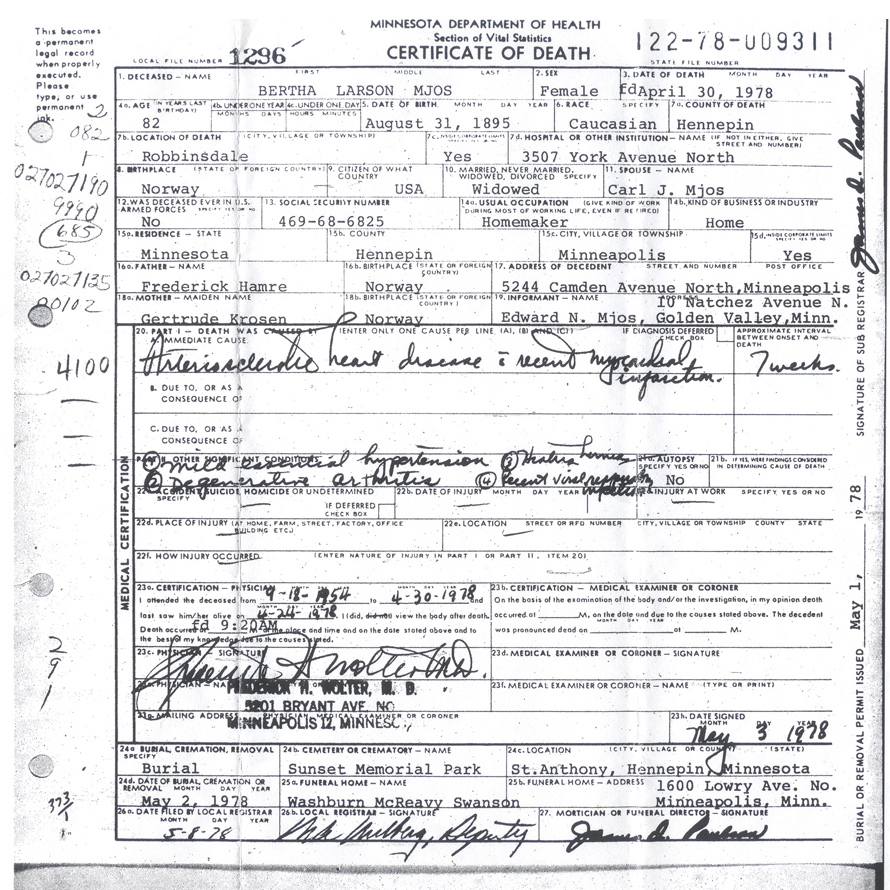 MINNESOTA DEPARTMENT OF HEALTH
Section of Vital Statistics
CERTIFICATE OF DEATH
122-78-009311
STATE FILE NUMBER
LOCAL FILE NUMBER 1296
This becomes
a permanent
legal record
when properly
executed.
Please
type, or use
permanent
ink.
2
082
1
027027190
9990
685
3
027027135
4100
2
9
1
1. DECEASED – NAME FIRST MIDDLE LAST 2. SEX 3. DATE OF DEATH MONTH DAY YEAR
BERTHA LARSON MJOS Female fd April 30, 1978
4a. AGE (IN YEARS LAST BIRTHDAY) 4b. UNDER ONE YEAR MONTHS DAYS 4c. UNDER ONE DAY HOURS MINUTES 5. DATE OF BIRTH MONTH DAY YEAR 6. RACE SPECIFY 7a. COUNTY OF DEATH
82 August 31, 1895 Caucasian Hennepin
7b. LOCATION OF DEATH (CITY, VILLAGE OR TOWNSHIP) 7c. INSIDE CORPORATE LIMITS 7d. HOSPITAL OR OTHER INSTITUTION – NAME (IF NOT IN EITHER, GIVE STREET AND NUMBER)
Robbinsdale Yes 3507 York Avenue North
8. BIRTHPLACE (STATE OR FOREIGN COUNTRY) 9. CITIZEN OF WHAT COUNTRY 10. MARRIED, NEVER MARRIED, WIDOWED, DIVORCED SPECIFY 11. SPOUSE – NAME
Norway USA Widowed Carl J. Mjos
12. WAS DECEASED EVER IN U.S. ARMED FORCES SPECIFY YES OR NO 13. SOCIAL SECURITY NUMBER 14a. USUAL OCCUPATION (GIVE KIND OF WORK DURING MOST OF WORKING LIFE, EVEN IF RETIRED) 14b. KIND OF BUSINESS OR INDUSTRY
No 469-68-6825 Homemaker Home
15a. RESIDENCE – STATE 15b. COUNTY 15c. CITY, VILLAGE OR TOWNSHIP 15d. INSIDE CORPORATE LIMITS SPECIFY YES OR NO
Minnesota Hennepin Minneapolis Yes
16a. FATHER – NAME 16b. BIRTHPLACE (STATE OR FOREIGN COUNTRY) 17. ADDRESS OF DECEDENT STREET AND NUMBER POST OFFICE
Frederick Hamre Norway 5244 Camden Avenue North, Minneapolis
18a. MOTHER – MAIDEN NAME 18b. BIRTHPLACE (STATE OR FOREIGN COUNTRY) 19. INFORMANT – NAME ADDRESS 10 Natchez Avenue N.
Gertrude Krosen Norway Edward N. Mjos, Golden Valley, Minn.
20. PART I – DEATH WAS CAUSED BY (ENTER ONLY ONE CAUSE PER LINE (A), (B) AND (C)) IF DIAGNOSIS DEFERRED CHECK BOX APPROXIMATE INTERVAL BETWEEN ONSET AND DEATH
A. IMMEDIATE CAUSE
Arteriosclerotic heart disease c̄ recent myocardial infarction. 7 weeks.
B. DUE TO, OR AS A
CONSEQUENCE OF
C. DUE TO, OR AS A
CONSEQUENCE OF
PART II OTHER SIGNIFICANT CONDITIONS 21a. AUTOPSY SPECIFY YES OR NO 21b. IF YES, WERE FINDINGS CONSIDERED IN DETERMINING CAUSE OF DEATH
① mild essential hypertension ③ Hiatus hernia No
② Degenerative arthritis ④ Recent viral respiratory infection
22a. ACCIDENT, SUICIDE, HOMICIDE OR UNDETERMINED SPECIFY IF DEFERRED CHECK BOX 22b. DATE OF INJURY MONTH DAY YEAR INJURY AT WORK SPECIFY YES OR NO
22d. PLACE OF INJURY (AT HOME, FARM, STREET, FACTORY, OFFICE BUILDING ETC.) 22e. LOCATION STREET OR RFD NUMBER CITY, VILLAGE OR TOWNSHIP COUNTY STATE
22f. HOW INJURY OCCURRED (ENTER NATURE OF INJURY IN PART I OR PART II, ITEM 20)
MEDICAL CERTIFICATION
23a. CERTIFICATION – PHYSICIAN
I attended the deceased from 9-18-1954 to 4-30-1978 and
last saw him/her alive on 4-24-1978. I did, did not view the body after death.
Death occurred fd 9:20AM M. at the place and time and on the date stated above and to
the best of my knowledge due to the causes stated.
23b. CERTIFICATION – MEDICAL EXAMINER OR CORONER
On the basis of the examination of the body and/or the investigation, in my opinion death
occurred at M., on the date and due to the causes stated above. The decedent
was pronounced dead on MONTH DAY YEAR at M.
23c. PHYSICIAN – SIGNATURE 23d. MEDICAL EXAMINER OR CORONER – SIGNATURE
Frederick H Wolter M.D.
23e. PHYSICIAN – NAME 23f. MEDICAL EXAMINER OR CORONER – NAME (TYPE OR PRINT)
FREDERICK H. WOLTER, M. D.
5201 BRYANT AVE. NO
MINNEAPOLIS 12, MINNESOTA
23g. MAILING ADDRESS – PHYSICIAN, MEDICAL EXAMINER OR CORONER 23h. DATE SIGNED MONTH DAY YEAR
May 3 1978
24a. BURIAL, CREMATION, REMOVAL SPECIFY 24b. CEMETERY OR CREMATORY – NAME 24c. LOCATION (CITY, VILLAGE OR COUNTY) (STATE)
Burial Sunset Memorial Park St. Anthony, Hennepin, Minnesota
24d. DATE OF BURIAL, CREMATION OR REMOVAL MONTH DAY YEAR 25a. FUNERAL HOME – NAME 25b. FUNERAL HOME – ADDRESS 1600 Lowry Ave. No.
May 2, 1978 Washburn McReavy Swanson Minneapolis, Minn.
26a. DATE FILED BY LOCAL REGISTRAR MONTH DAY YEAR 26b. LOCAL REGISTRAR – SIGNATURE 27. MORTICIAN OR FUNERAL DIRECTOR – SIGNATURE
5-8-78 Deputy James D. Paulson
BURIAL OR REMOVAL PERMIT ISSUED May 1, 1978 SIGNATURE OF SUB REGISTRAR James D. Paulson